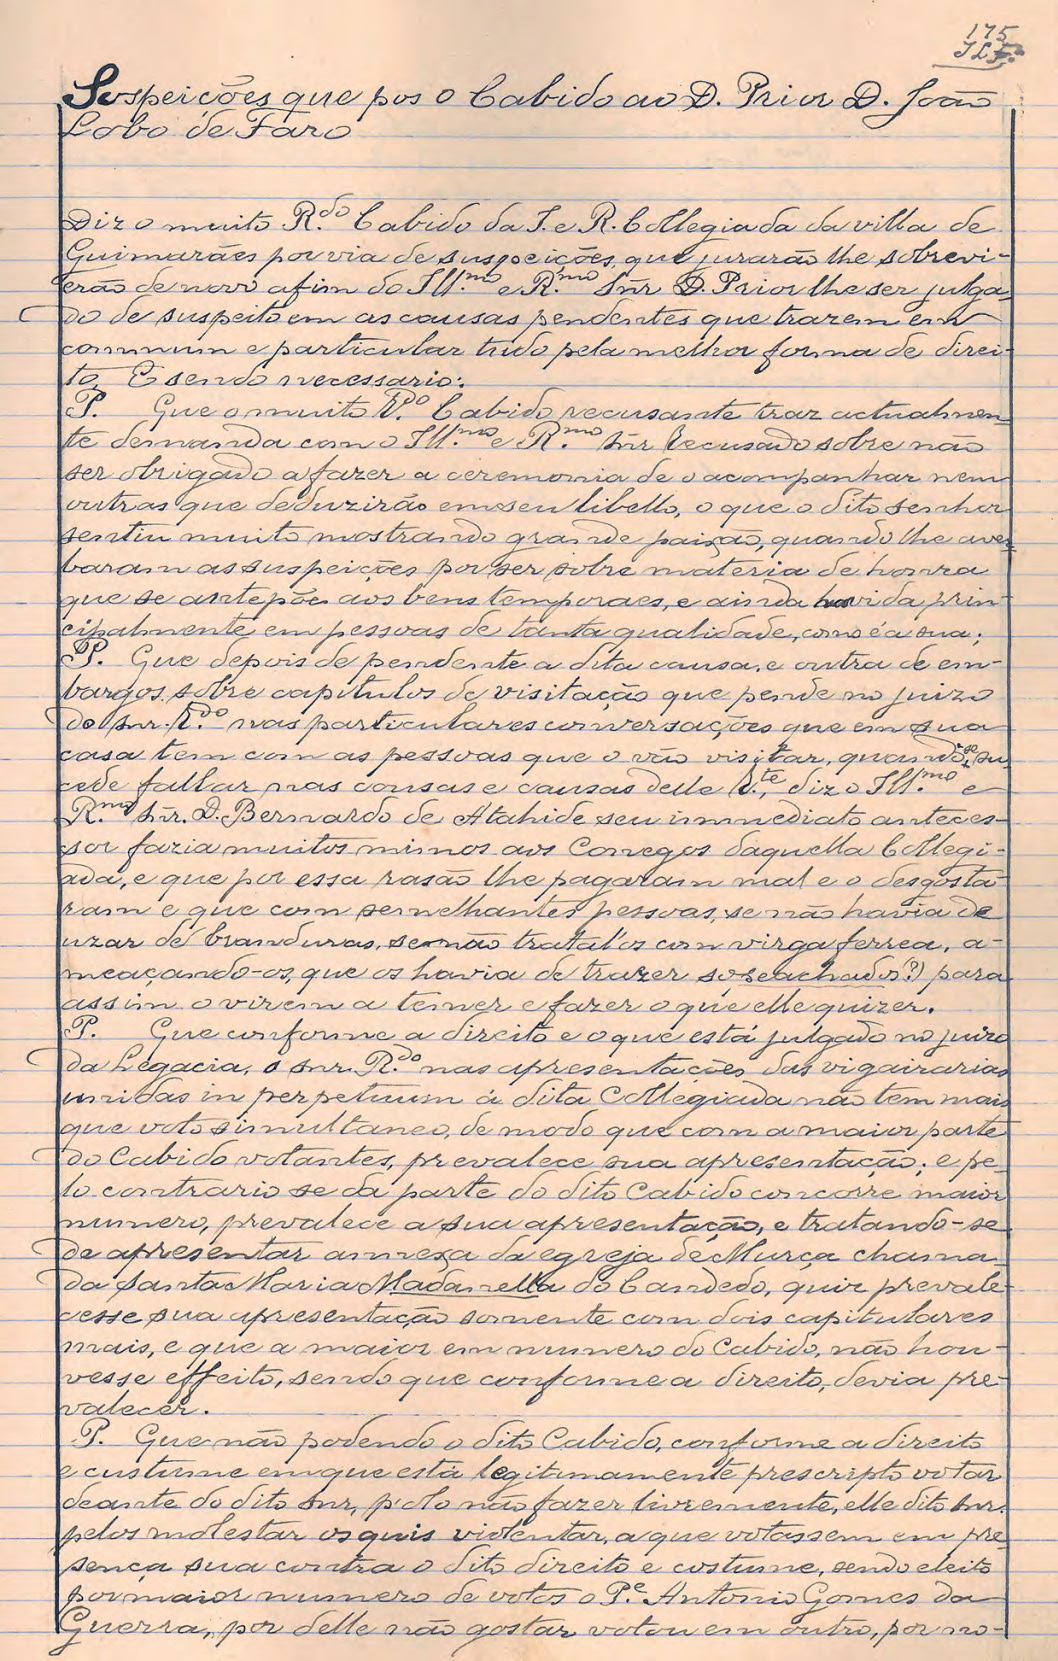 175
Sospeições que pos o Cabido ao D. Prior D. João
Lobo de Faro
Diz o muito R.do Cabido da I. e R. Collegiada da villa de
Guimarães por via de suspeições, que jurarão lhe sobrevi-
erão de novo afim do Ill.mo e R.mo Snr D. Prior lhe ser julga-
do de suspeito em as causas pendentes que trazem em
commum e particular tudo pela melhor forma de direi-
to, E sendo necessario:
P. Que o muito R.do Cabido recusante traz actualmen-
te demanda com o Ill.mo e R.mo Snr Recusado sobre não
ser obrigado a fazer a ceremonia de o acompanhar nem
outras que deduzirão em seu libello, o que o dito senhor
sentiu muito mostrando grande paixão, quando lhe aver-
baram as suspeições por ser sobre materia de honra
que se antepõe aos bens temporaes, e ainda havida prin-
cipalmente em pessoas de tanta qualidade, como é a sua;
P. Que depois de pendente a dita causa, e outra de em-
bargos sobre capitulos de visitação que pende no juizo
do Snr. R.do nas particulares conversações que em sua
casa tem com as pessoas que o vão visitar, quando se su-
cede fallar nas cousas e causas delle R.te, diz o Ill.mo e
R.mo Snr. D. Bernardo de Atahide seu immediato anteces-
sor fazia muitos mimos aos Conegos daquella Collegi-
ada, e que por essa rasão lhe pagaram mal e o desgosta-
ram e que com semelhantes pessoas, se não havia de
uzar de branduras, senão tratal'os com virga ferrea, a-
meaçando-os, que os havia de trazer so seachados(?) para
assim o virem a temer e fazer o que elle quizer.
P. Que conforme a direito e o que está julgado no juizo
da Legacia, o Snr. R.do nas apresentações das vigairarias
unidas in perpetuum á dita Collegiada não tem mais
que voto simultaneo, de modo que com a maior parte
do Cabido votantes, prevalece sua apresentação; e pe-
lo contrario se da parte do dito Cabido concorre maior
numero, prevalece a sua apresentação, e tratando-se
de apresentar annexa da egreja de Murça chama-
da Santa Maria Madanella do Candedo, quiz prevale-
cesse sua apresentação somente com dois capitulares
mais, e que a maior em numero do Cabido, não hou-
vesse effeito, sendo que conforme a direito, devia pre-
valecer.
P. Que não podendo o dito Cabido, conforme a direito
e custume em que está legitimamente prescripto votar
deante do dito Snr, p'elo não fazer livremente, elle dito Snr.
pelos molestar os quis violentar, a que votassem em pre-
sença sua contra o dito direito e costume, sendo eleito
por maior numero de votos o P.e Antonio Gomes da
Guerra, por delle não gostar votou em outro, por mo-